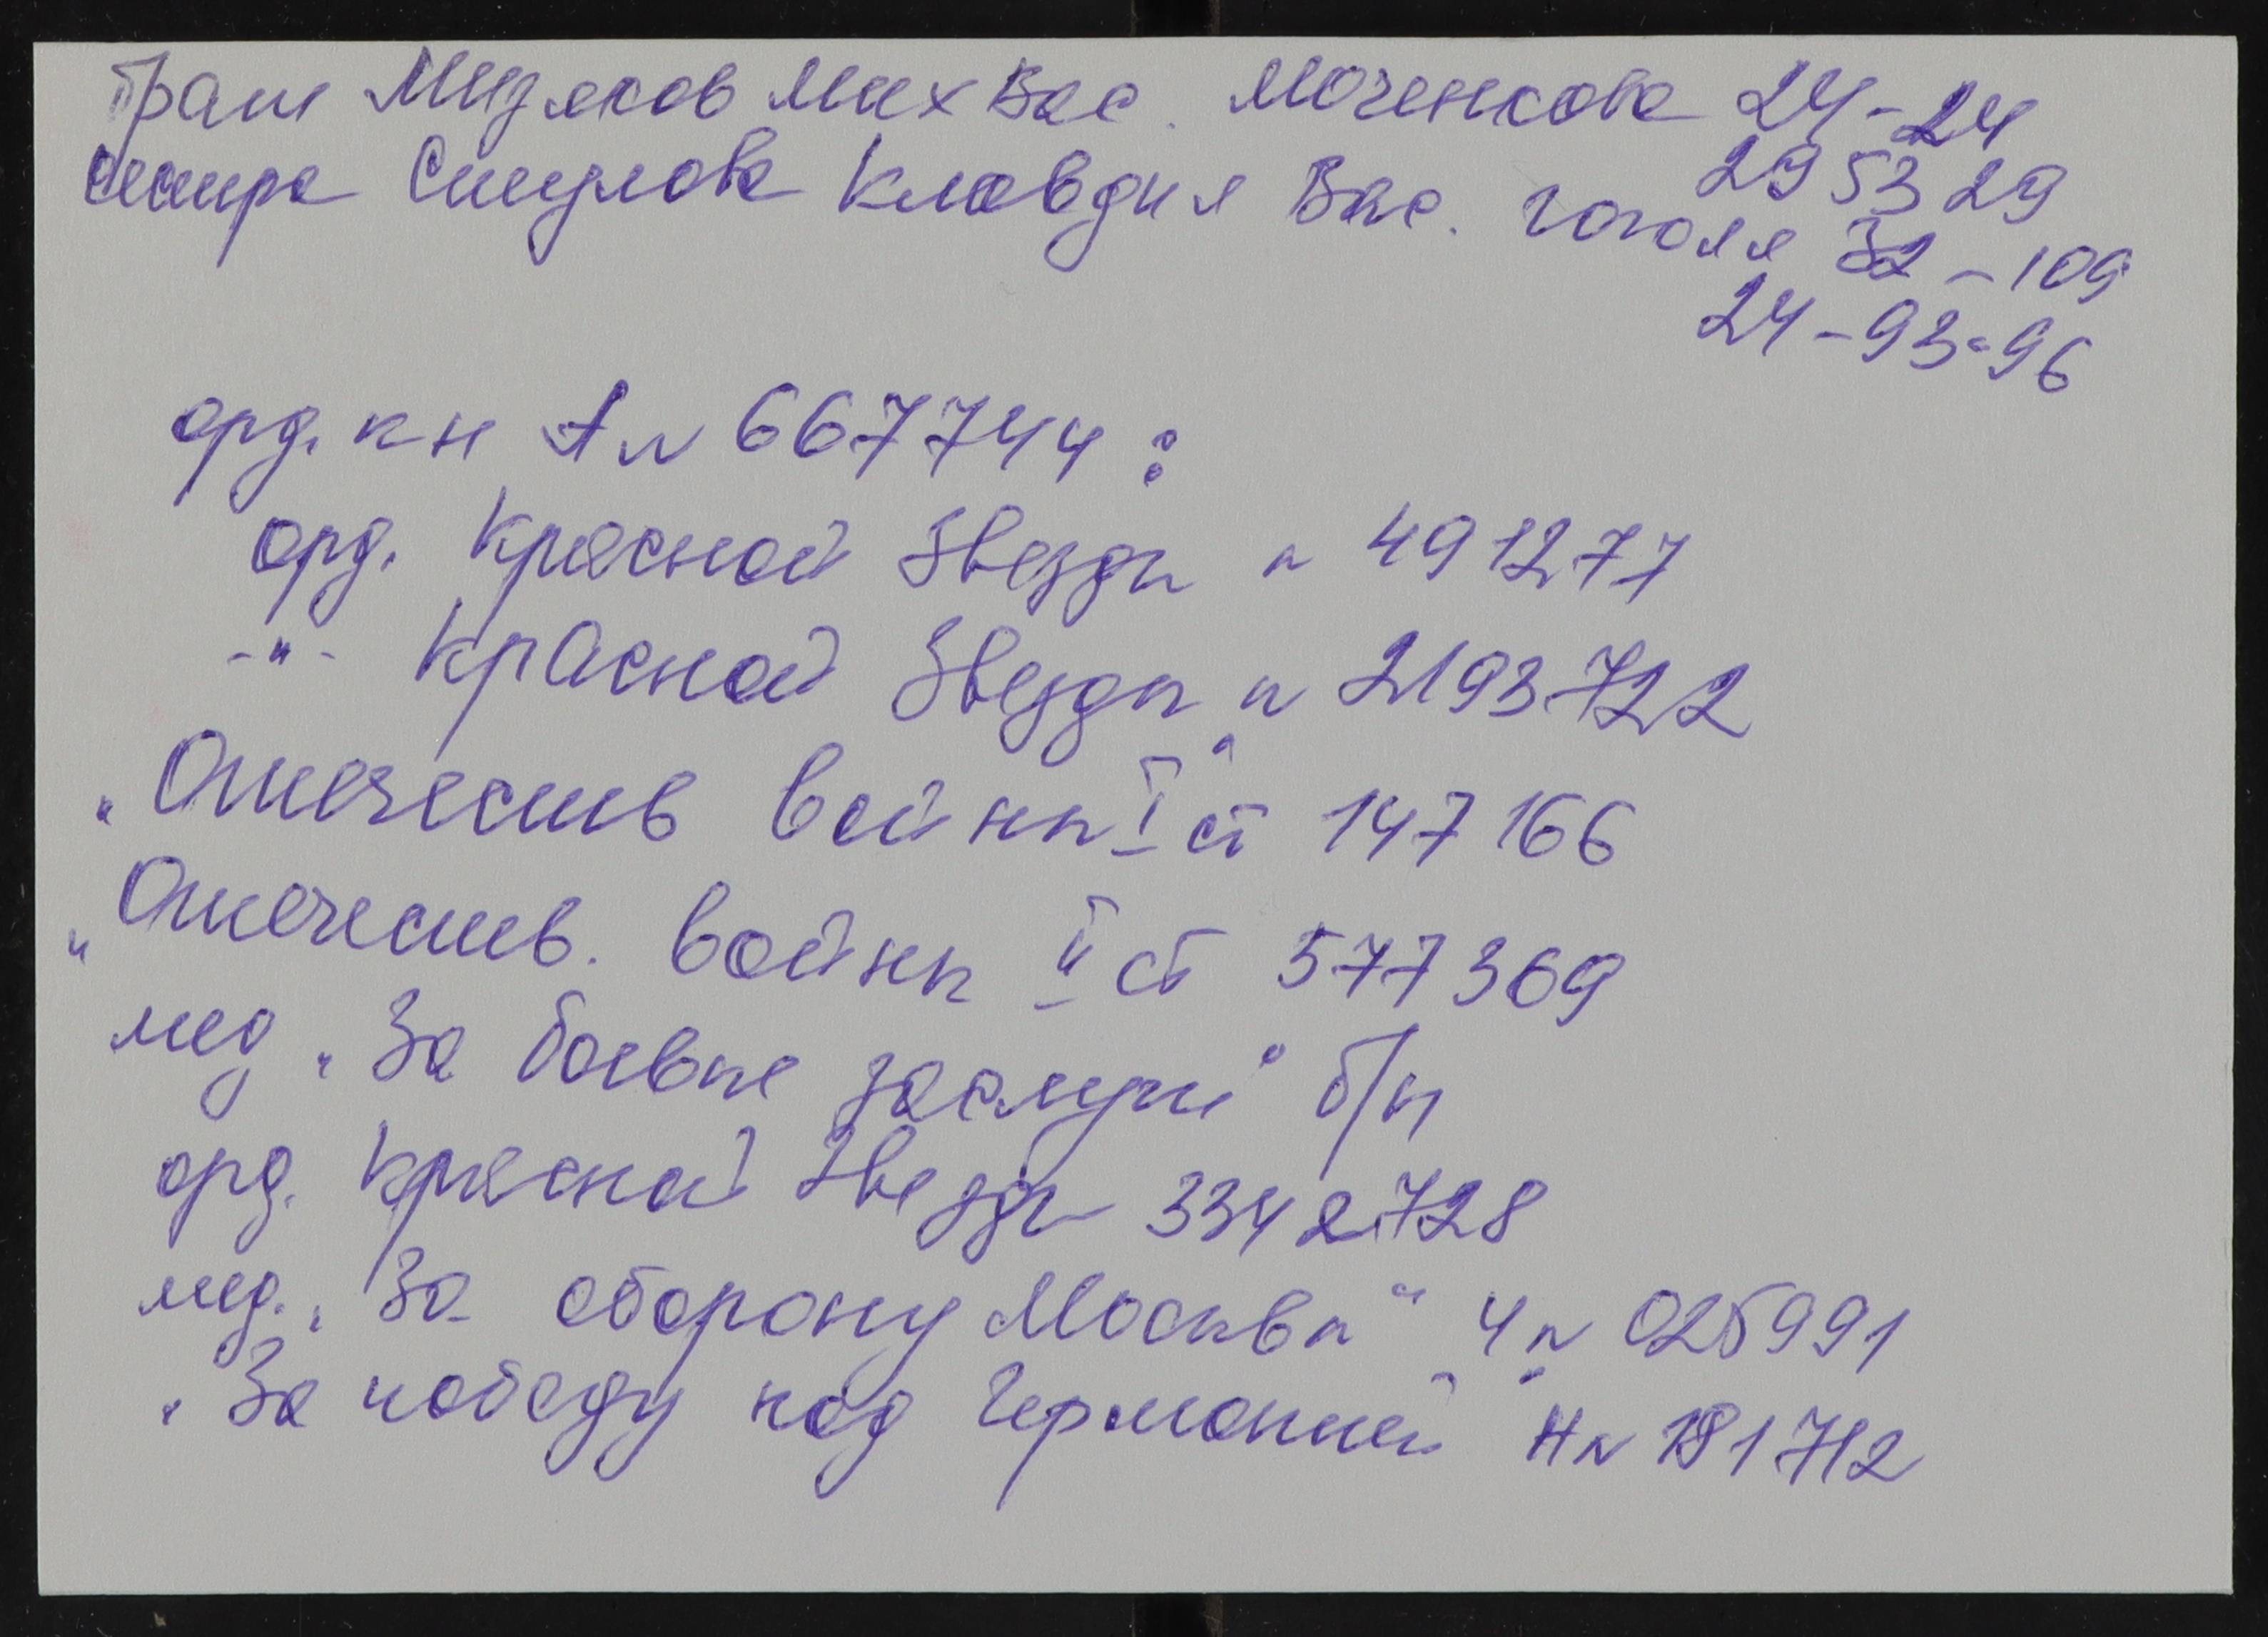 брат Мизяков Мих Вас. Моченкова 24-24
29 53 29
сестра Смирнова Клавдия Вас. Гоголя 32-109
24-93-96
орд. кн А № 667744:
орд. Красной Звезды № 491277
-"- Красной Звезды № 2193722
"Отечеств войны" I ст 147166
"Отечеств. войны II ст 577369
мед "За боевые заслуги" б/н
орд. Красной Звезды 3342728
мед. "За оборону Москвы" Ч № 025991
"За победу над Германией" Н № 181712